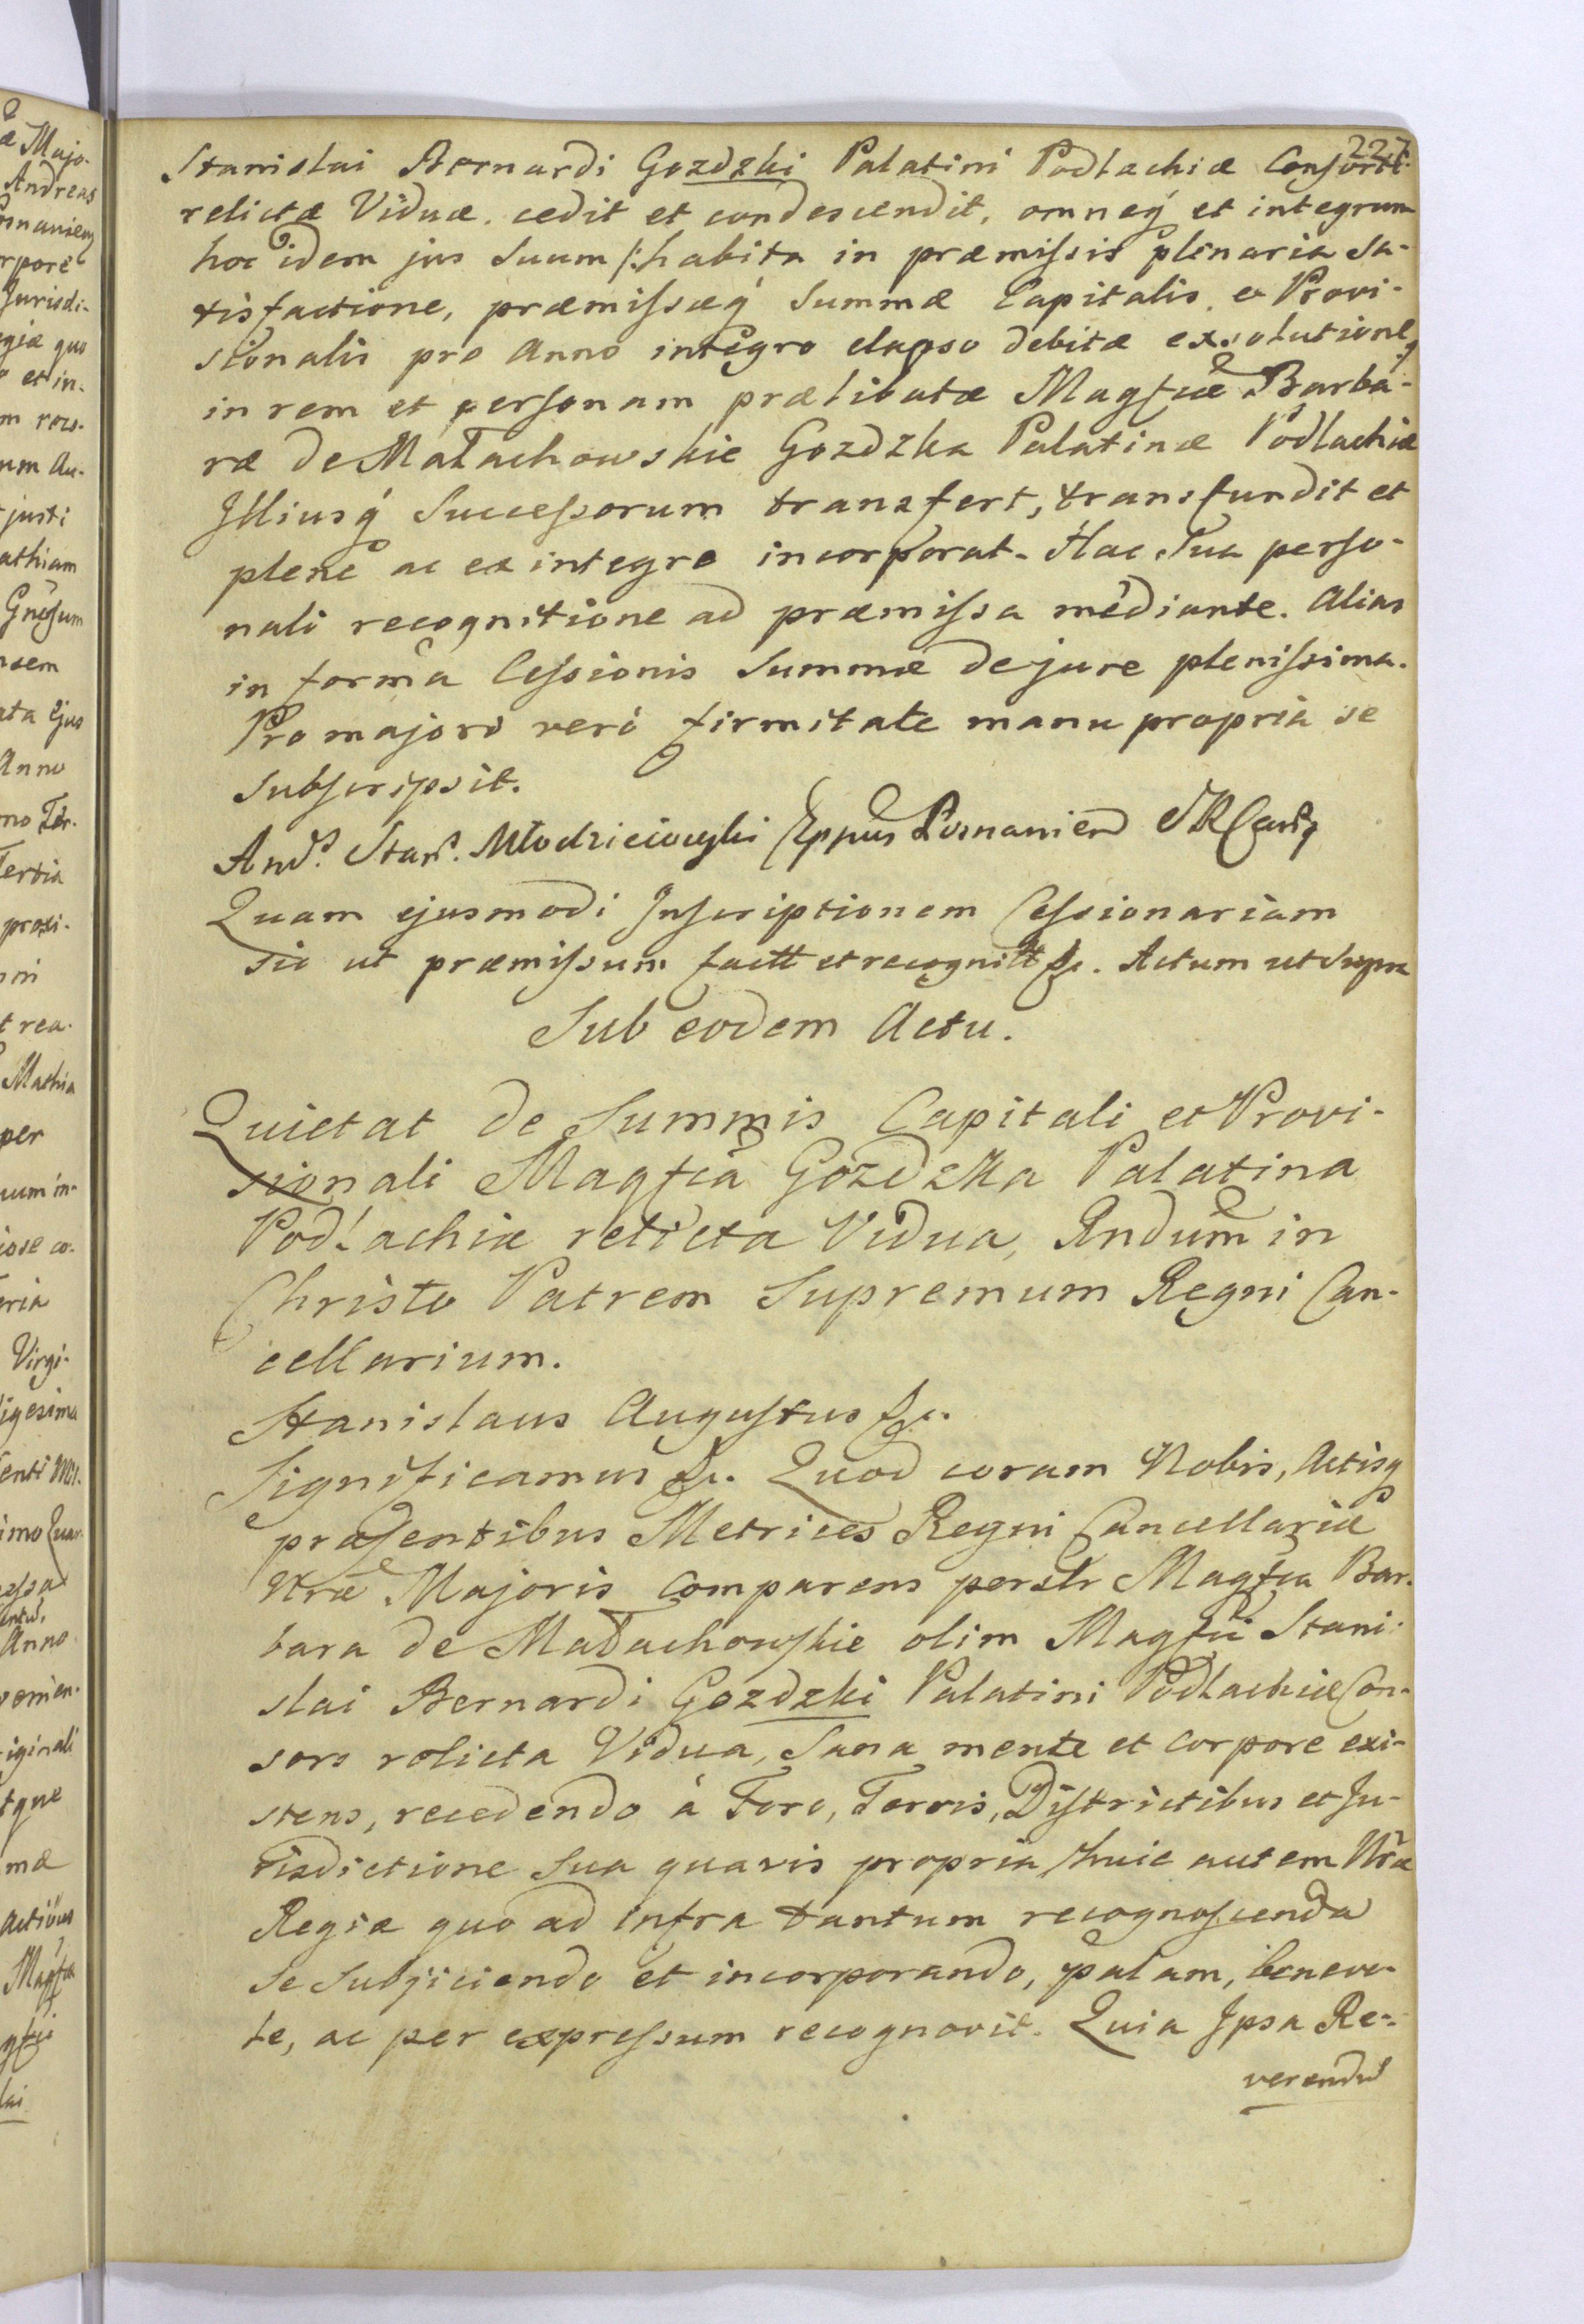 227
Stanislai Bernardi Gozdzki Palatini Podlachiæ Consorti
relictæ Viduæ cedit et condescendit, omneq́ et integrum
hoc idem jus Suum /: habita in præmissis plenaria sa-
tisfactione, præmissæq́ Summæ Capitalis et Provi-
sionalis pro Anno integro elapso debitæ exsolutione :/
in rem et personam prælibatæ Magfcæ Barba-
ræ de Małachowskie Gozdzka Palatinæ Podlachiæ
Illiusq́ Successorum transfert, transfundit et
plene ac ex integro incorporat. Hac Sua perso-
nali recognitione ad præmissa mediante. Alias
in forma Cessionis Summæ de jure plenissima.
Pro majori verò firmitate manu propria se
Subscripsit.
And. Stan. Młodzieiowski Eppus Posnanien SRCanc
Quam ejusmodi Inscriptionem Cessionariam
sic ut præmissum factt et recognitt &c. Actum ut Supra
Sub eodem Actu.
Quietat de Summis Capitali et Provi-
sionali Magfca Gozdzka Palatina
Podlachiæ relicta Vidua, Rndum in
Christo Patrem Supremum Regni Can-
cellarium.
Stanislaus Augustus &c.
Significamus &c. Quod coram Nobis, Actisq
præsentibus Metrices Regni Cancellariæ
Nræ Majoris Comparens perslr Magfca Bar-
bara de Małachowskie olim Magfci Stani-
slai Bernardi Gozdzki Palatini Podlachiæ Con-
sors relicta Vidua, Sana mente et corpore exi-
stens, recedendo à Foro, Terris, Districtibus et Ju-
risdictione Sua quavis propria huic autem Nræ
Regiæ quo ad infra tantum recognoscenda
se Subjiciendo et incorporando, palam, benevo-
le, ac per expressum recognovit. Quia Ipsa Re-
verendum